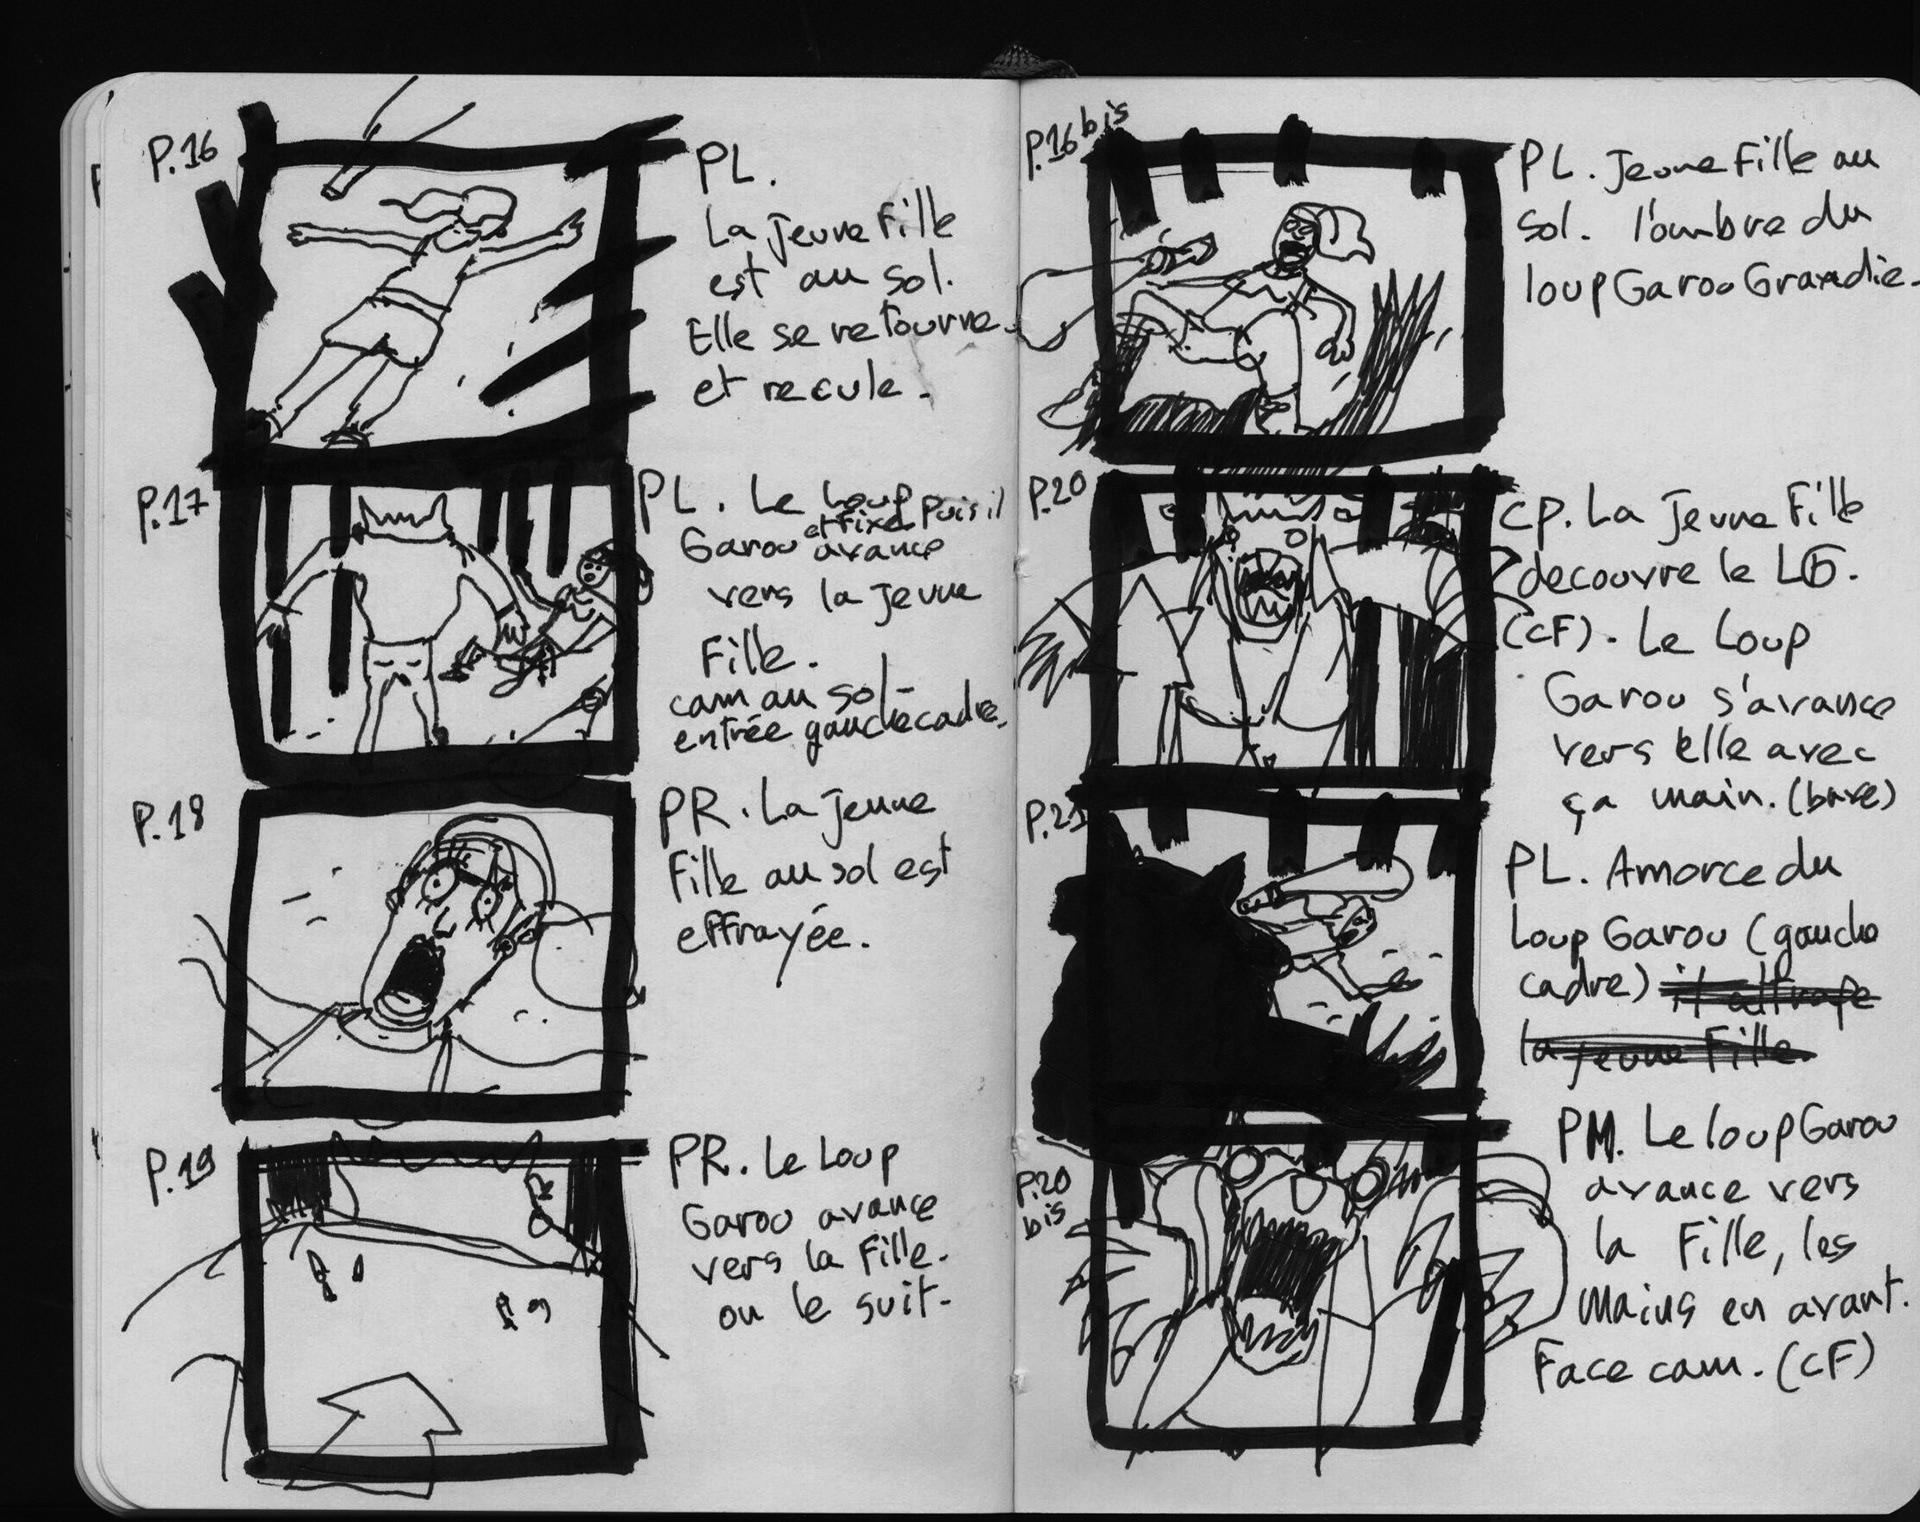 P.16
PL.
La jeune Fille
est au sol.
Elle se retourne
et recule.
P.17
PL. Le Loup
et fixe puis il
Garou avance
vers la jeune
Fille.
cam au sol-
entrée gauche cadre.
P.18
PR. La jeune
Fille au sol est
effrayée.
P.19
PR. Le Loup
Garou avance
vers la Fille.
ou le suit.
P.16 bis
PL. Jeune Fille au
sol. l'ombre du
loup Garou Grandie.
P.20
CP. La Jeune Fille
decouvre le LG.
(CF). Le Loup
Garou s'avance
vers elle avec
ça main. (bave)
P.21
PL. Amorce du
Loup Garou (gauche
cadre) il attrape
la jeune Fille.
P.20
bis
PM. Le loup Garou
avance vers
la Fille, les
Mains en avant.
Face cam. (CF)